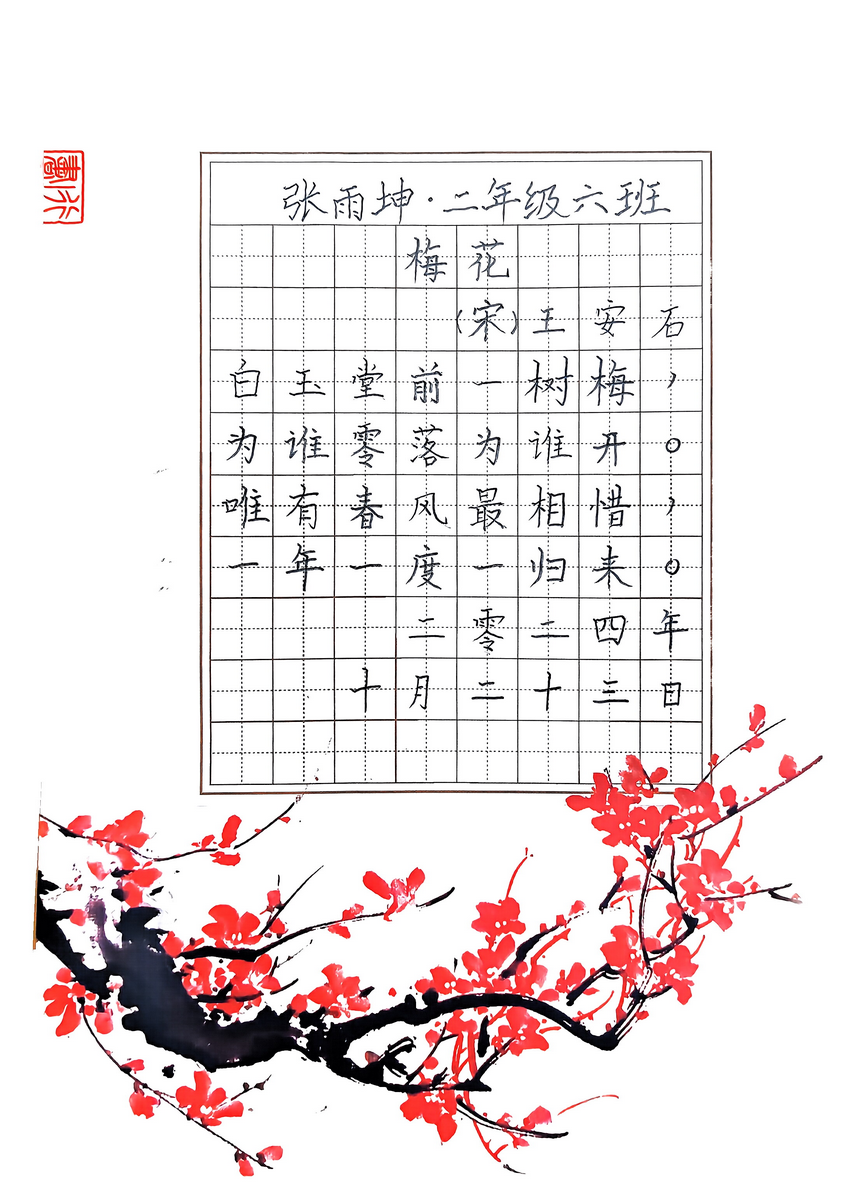 张雨坤·二年级六班
梅花
(宋)王安石
白玉堂前一树梅,
为谁零落为谁开。
唯有春风最相惜,
一年一度一归来。
二零二四年
十月二十三日